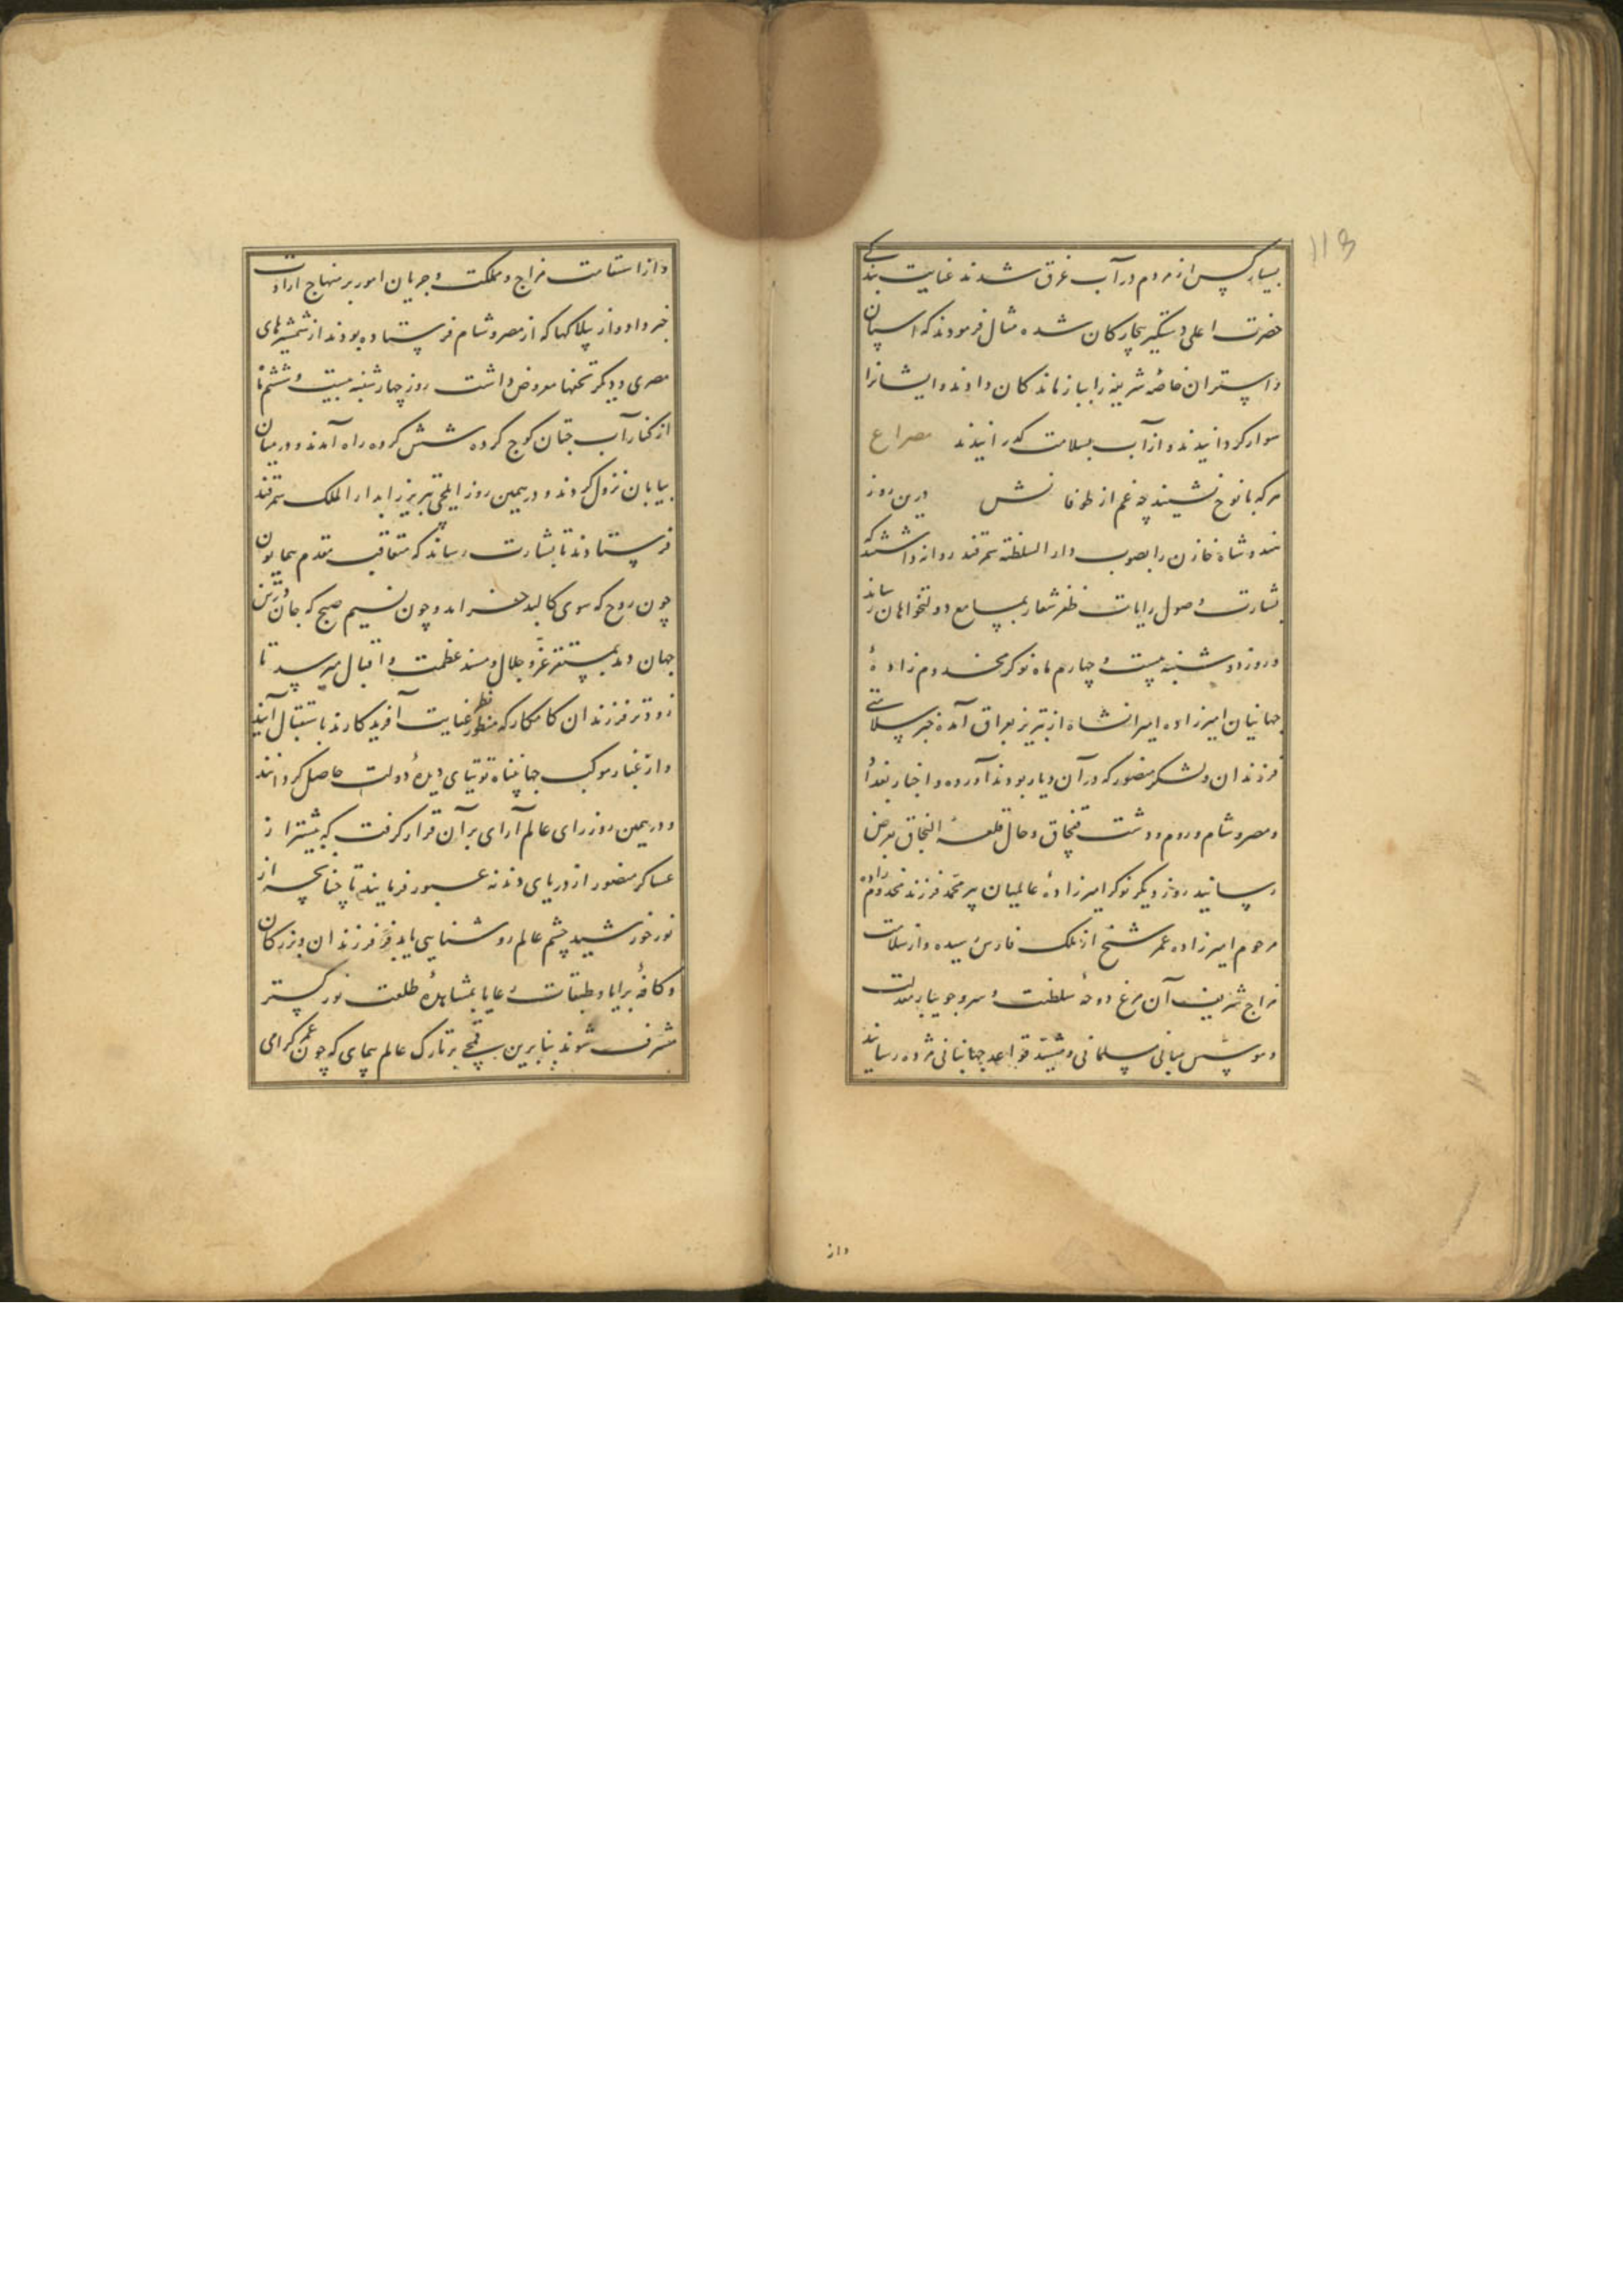 113
بسیار کس از مردم در آب غرق شدند عنایت بندکی
حضرت اعلی دستکیر بیچارکان شده مثال فرمودند که اسپان
و استران خاصهٔ شریفه را بباز ماندکان دادند و ایشانرا
سوار کردانیدند و از آب بسلامت کذرانیدند مصراع
هر که با نوح نشیند چه غم از طوفانش درین روز
هندوشاه خازن را بصوب دار السلطنه سمرقند روانه داشتند که
بشارت وصول رایات ظفر شعار بمسامع دولتخواهان رساند
و روز دوشنبه بیست و چهارم ماه نوکر مخدوم زادهٔ
جهانیان امیرزاده امیرانشاه از تبریز بعراق آمده خبر سلامتی
فرزندان و لشکر منصور که در آن دیار بودند آورده و اخبار بغداد
و مصر و شام و روم و دشت قپچاق و حال قلعهٔ النجاق بعرض
رسانید روز دیکر نوکر امیرزادهٔ عالمیان پیر محمد فرزند مخدوم زاده
مرحوم امیرزاده عمر شیخ از ملک فارس رسیده و از سلامت
مزاج شریف آن مرغ دوحهٔ سلطنت و سرو جویبار معدلت
و موسس مبانی مسلمانی و مشید قواعد جهانبانی مژده رسانید
و از
و از استقامت مزاج و مملکت و جریان امور بر منهاج ارادت
خبر داد و از بیلاکها که از مصر و شام فرستاده بودند از شمشیرهای
مصری و دیکر تحفها معروض داشت روز چهارشنبه بیست و ششم ماه
از کنار آب جتان کوچ کرده شش کروه راه آمدند و در میان
بیابان نزول کردند و در همین روز ایلچی تبریز را بدار الملک سمرقند
فرستادند تا بشارت رساند که متعاقب مقدم همایون
چون روح که سوی کالبد خرامد و چون نسیم صبح که جان در تن
جهان دمد بمستقر عز و جلال و مسند عظمت و اقبال میرسد تا
زودتر فرزندان کامکار که منظور نظر عنایت آفریدکارند باستقبال آیند
و از غبار موکب جهانپناه توتیای دیدهٔ دولت حاصل کردانند
و در همین روز رای عالم آرای بر آن قرار کرفت که پیشتر از
عساکر منصور از دریای دندنه عبور فرمایند تا چنانچه از
نور خورشید چشم عالم روشنایی یابد فرزندان و بزرکان
و کافهٔ برایا و طبقات رعایا بمشاهدهٔ طلعت نور کستر
مشرف شوند بنابرین بر تارک عالم پیمای که چون عمر کرامی